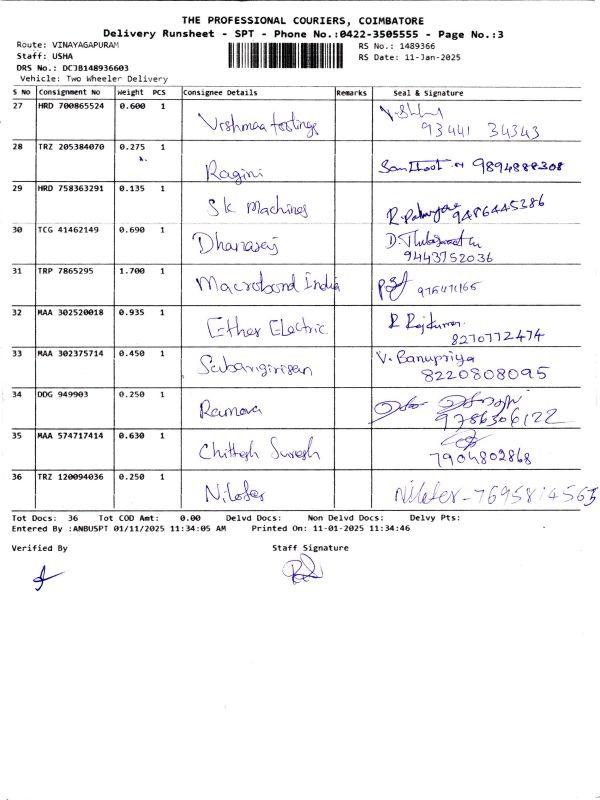 THE PROFESSIONAL COURIERS, COIMBATORE
Delivery Runsheet - SPT - Phone No.:0422-3505555 - Page No.:3
Route: VINAYAGAPURAM RS No.: 1489366
Staff: USHA RS Date: 11-Jan-2025
DRS No.: DCJB148936603
Vehicle: Two Wheeler Delivery
S No Consignment No Weight PCS Consignee Details Remarks Seal & Signature
27 HRD 700865524 0.600 1 Vishmaa tootings
93441 34343
28 TRZ 205384070 0.275 1 Ragini 9894888308
29 HRD 758363291 0.135 1 SK Machines 9486445386
30 TCG 41462149 0.690 1 Dhanaraj
9443752036
31 TRP 7865295 1.700 1 Macrobond India
32 MAA 302520018 0.935 1 Ether Electric R Rajkumar
8270772474
33 MAA 302375714 0.450 1 Sabarigirisan V. Banupriya
8220808095
34 DDG 949903 0.250 1 Ramova
9786306122
35 MAA 574717414 0.630 1 Chittesh Suresh
7904802868
36 TRZ 120094036 0.250 1 Nilofer Nilofer-7695814563
Tot Docs: 36 Tot COD Amt: 0.00 Delvd Docs: Non Delvd Docs: Delvy Pts:
Entered By :ANBUSPT 01/11/2025 11:34:05 AM Printed On: 11-01-2025 11:34:46
Verified By Staff Signature